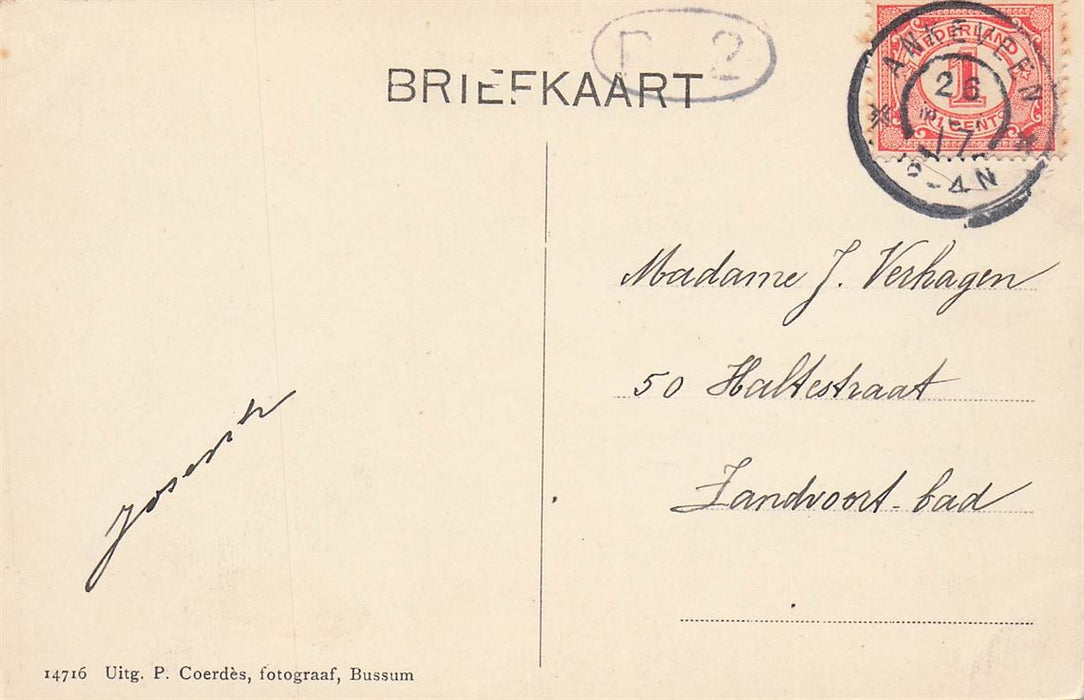 BRIEFKAART
2
NEDERLAND
1
CENT
ANKEVEEN
26
17
-4N
Madame J. Verhagen
50 Haltestraat
Zandvoort-bad
14716 Uitg. P. Coerdès, fotograaf, Bussum